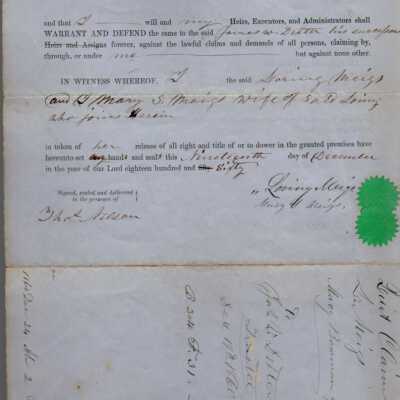 and that I will and my Heirs, Executors, and Administrators shall
WARRANT AND DEFEND the same to the said James W. his successors
Heirs and Assigns forever, against the lawful claims and demands of all persons, claiming by,
through, or under me but against none other.
IN WITNESS WHEREOF, I the said Loring Meigs
and I Mary S. Meigs wife of said Loring
who joins herein
in token of her release of all right and title of or to dower in the granted premises have
hereunto set my hand and seal this Nineteenth day of December
in the year of our Lord eighteen hundred and Sixty
Signed, sealed and delivered
in the presence of
Loring Meigs
Mary S. Meigs.
Thos. Nelson
Quit Claim
Meigs
Mary
To
Trustee